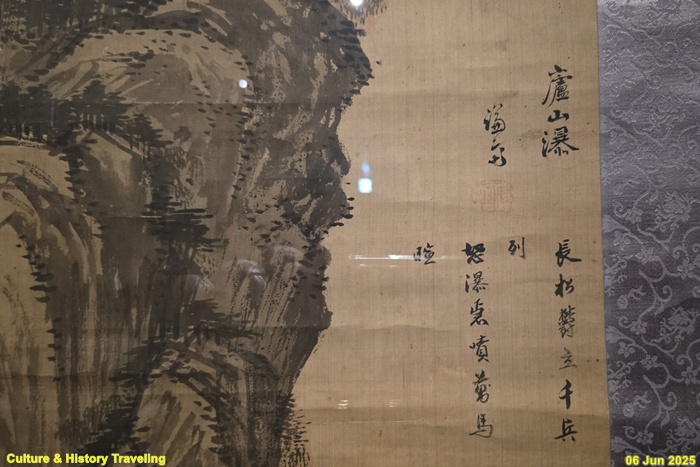 廬山瀑
謙齋
長松欝立千兵
列
怒瀑急噴萬馬
喧
Culture & History Traveling
06 Jun 2025